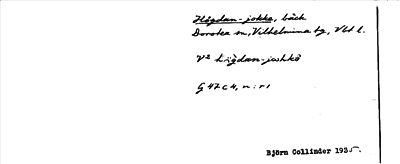 Högdan-jokke, bäck
Dorotea sn, Vilhelmina tg, Vbt l.
V² högdan-johkə
G 47 c 4, n:r 1
Björn Collinder 1935.